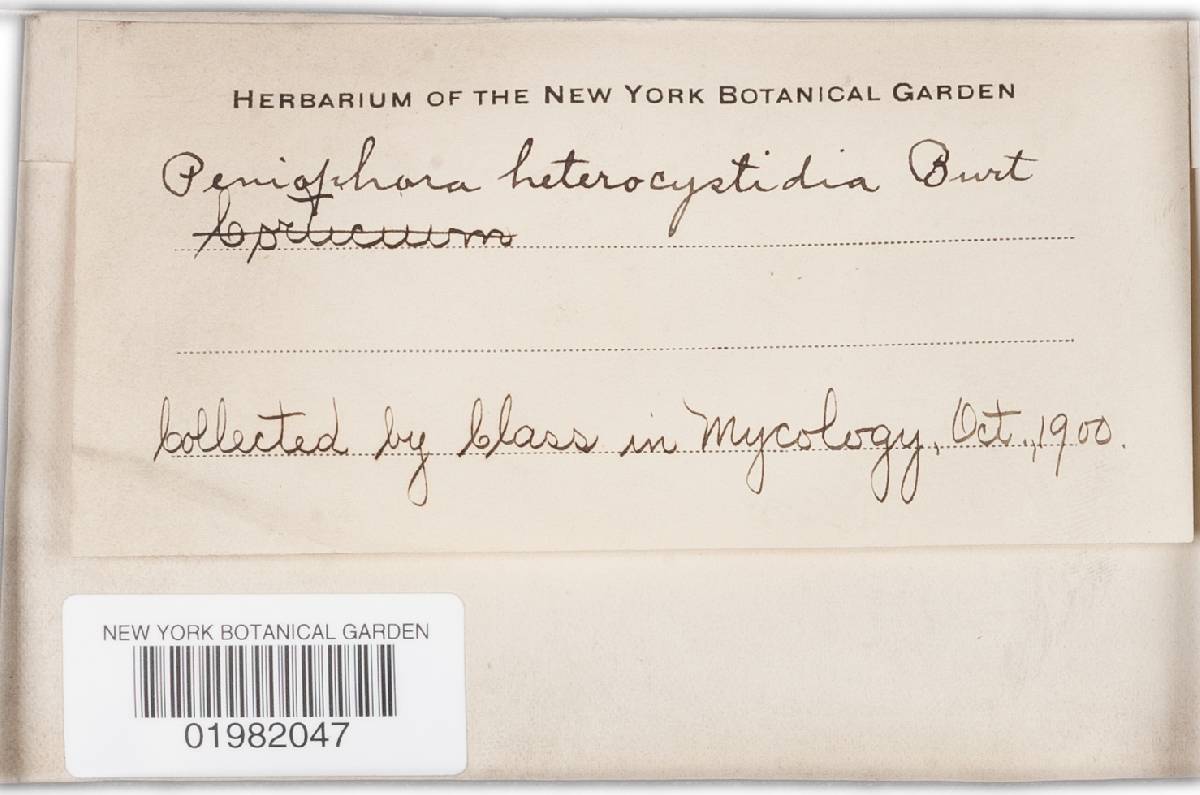 HERBARIUM OF THE NEW YORK BOTANICAL GARDEN
Peniophora heterocystidia Burt
Corticium
Collected by Class in Mycology, Oct., 1900.
NEW YORK BOTANICAL GARDEN
01982047